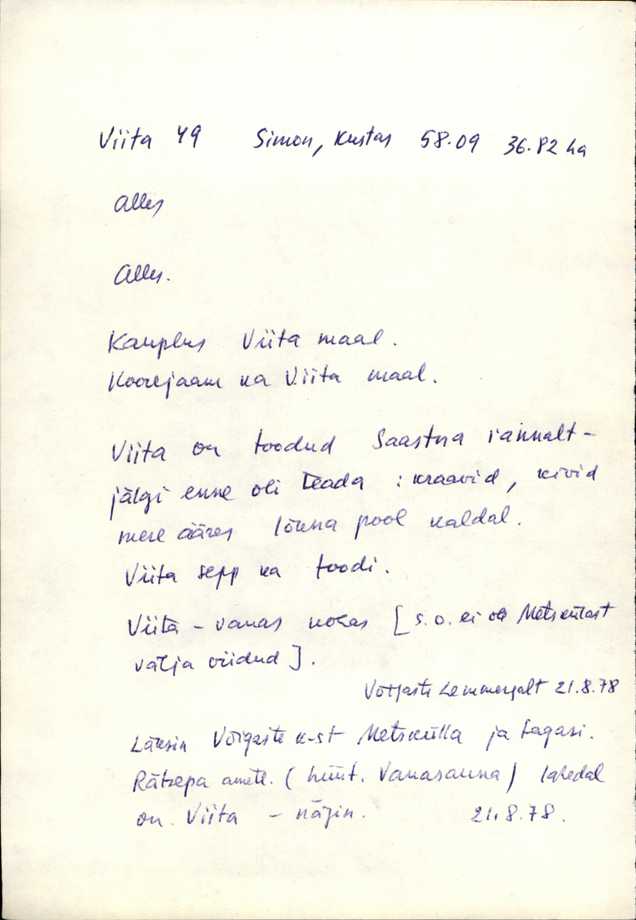 Viita 49 Simon, Kustas 58.09 36.82 ha
Alles
Alles.
Kauplus Viita maal.
Koorejaam ka Viita maal.
Viita on toodud Saastna rannalt-
jälgi enne oli teada : kraavid, kivid
mere ääres lõuna pool kaldal.
Viita sepp ka toodi.
Viita - vanas kohas [s.o. ei ole Metskülast
välja viidud].
Võigaste Lemmergalt 21.8.78
Läksin Võigaste k-st Metskülla ja tagasi.
Rätsepa amets. (hüüt. Vanasauna) lähedal
on Viita - nägin. 21.8.78.